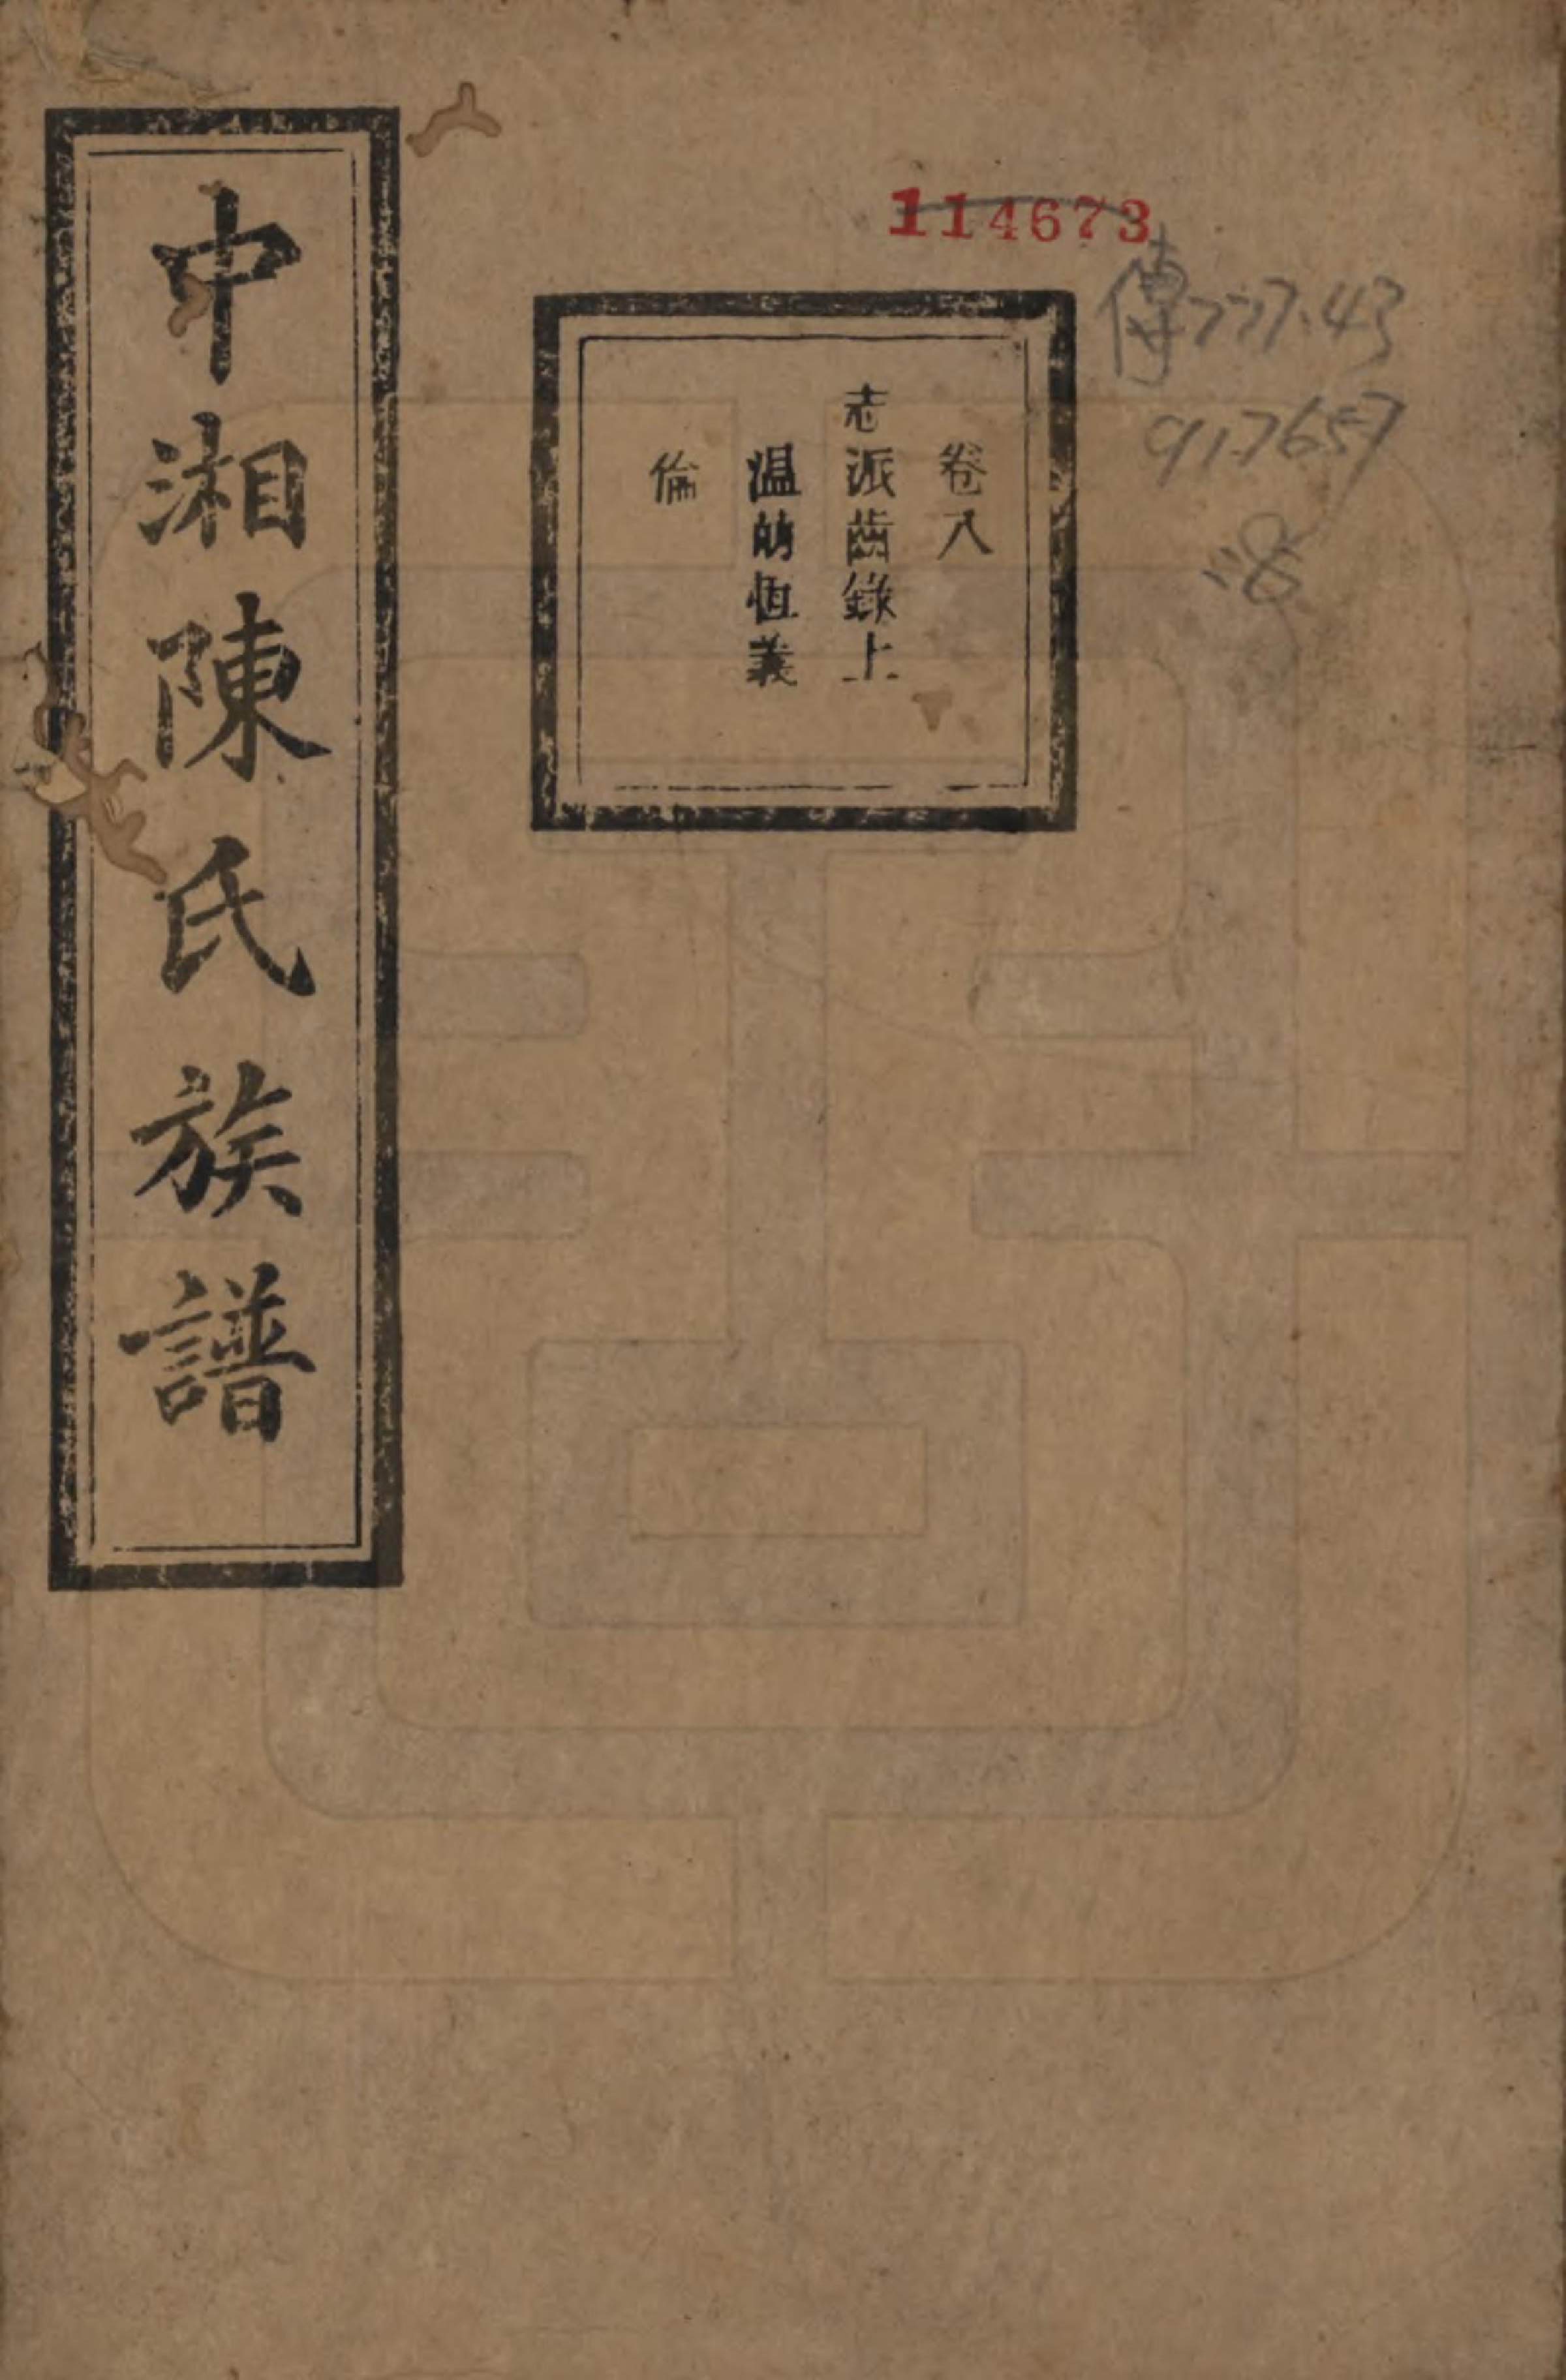 中湘陳氏族譜
114673
傳777.43
917657
:8
卷八
志派齒錄上
温昫恒義
倫